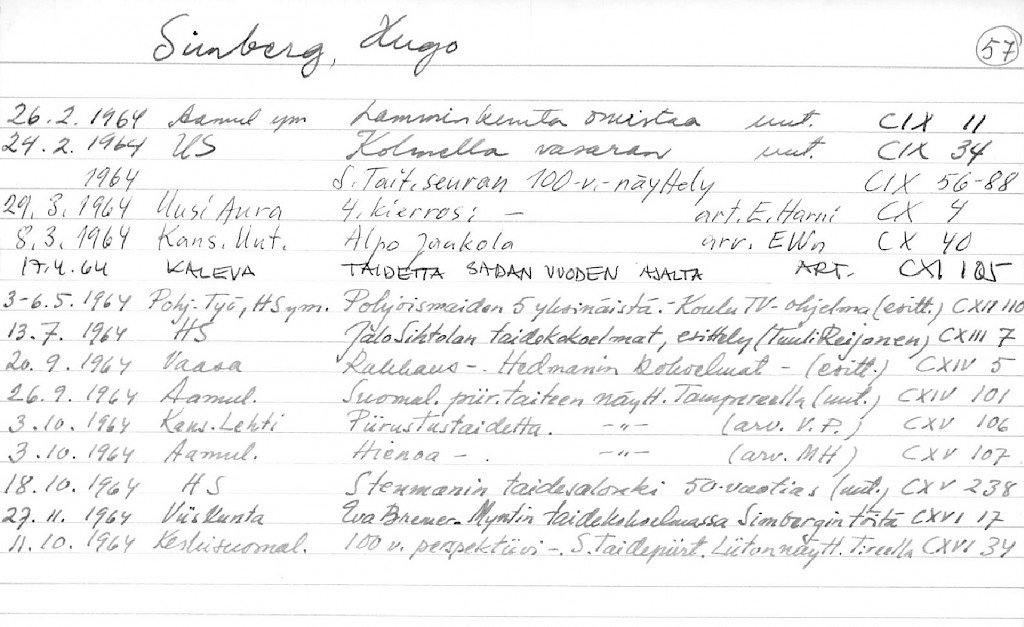 Simberg, Hugo 57
26.2.1964 Aamul ym Lamminkunta omistaa uut. CIX 11
24.2.1964 US Kolmella vasaran uut. CIX 34
1964 S.Tait.seuran 100-v.-näyttely CIX 56-88
29.3.1964 Uusi Aura 4. kierros: - art. E. Harni CX 4
8.3.1964 Kans. Uut. Alpo Jaakola arv. EWn CX 40
17.4.64 KALEVA TAIDETTA SADAN VUODEN AJALTA ART. CXI 105
3-6.5.1964 Pohj. Työ, HS ym. Pohjoismaiden 5 yksinäistä.- Koulu TV-ohjelma (esitt.) CXII 110
13.7.1964 HS Jalo Sihtolan taidekokoelmat, esittely (Tuuli Reijonen) CXIII 7
20.9.1964 Vaasa -. Hedmanin kokoelmat - (esitt.) CXIV 5
26.9.1964 Aamul. Suomal. piir.taiteen näytt. Tampereella (uut.) CXIV 101
3.10.1964 Kans. Lehti Piirustustaidetta. -"- (arv. V.P.) CXV 106
3.10.1964 Aamul. Hienoa -. -"- (arv. MH) CXV 107
18.10.1964 HS Stenmanin taidesalonki 50-vuotias (uut.) CXV 238
27.11.1964 Viiskunta Eva Bremer-Myntin taidekokoelmassa Simbergin töitä CXVI 17
11.10.1964 Keskisuomal. 100 v. perspektiivi -. S.Taidepiirt. Liiton näytt. T:reella CXVI 34